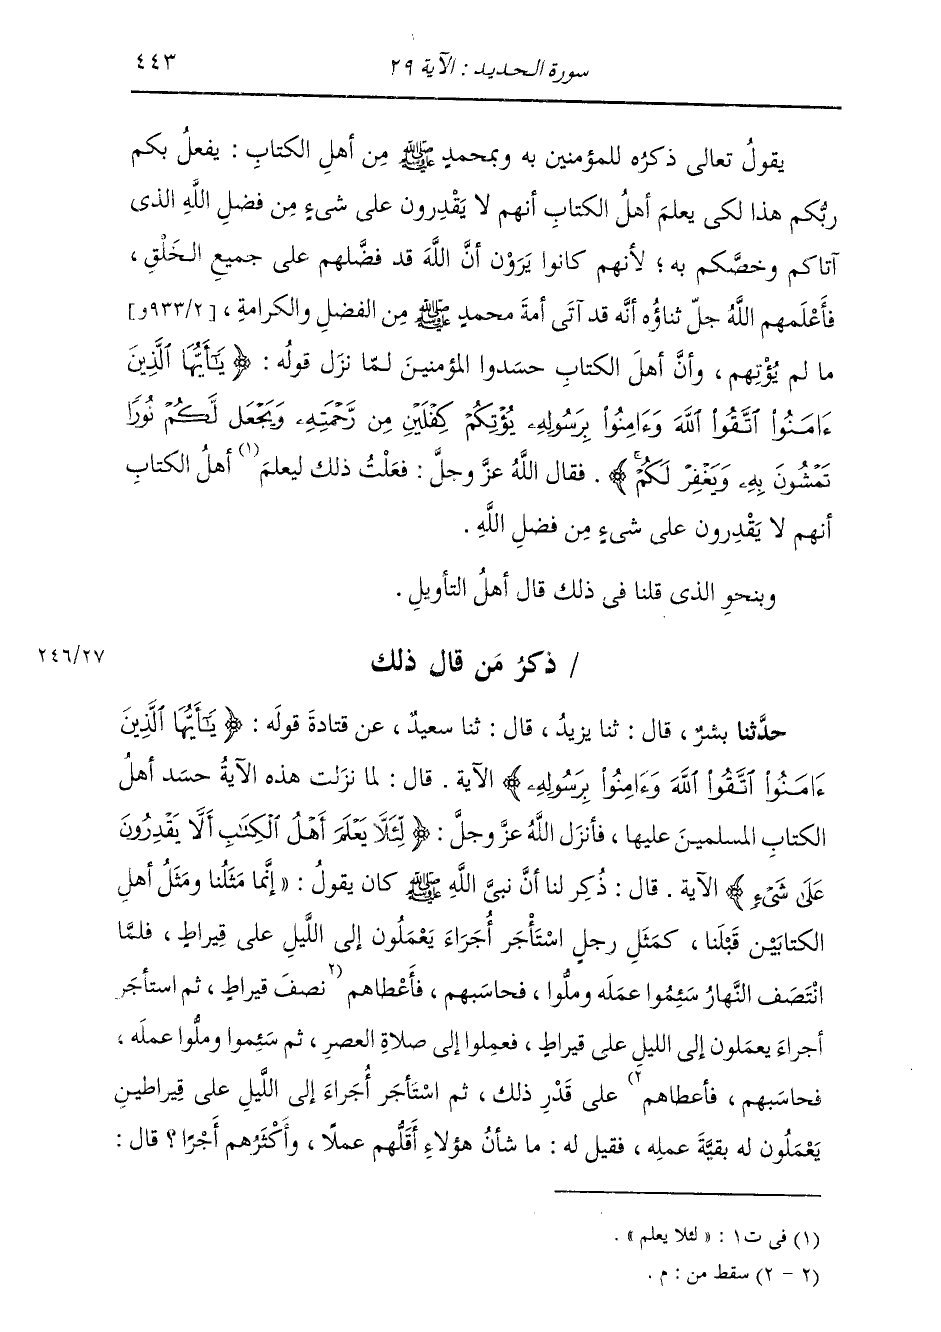 سورة الحديد : الآية ٢٩
٤٤٣
يقولُ تعالى ذكرُه للمؤمنين به وبمحمدٍ ﷺ مِن أهلِ الكتابِ : يفعلُ بكم
ربُّكم هذا لكى يعلمَ أهلُ الكتابِ أنهم لا يَقْدِرون على شىءٍ مِن فضلِ اللَّهِ الذى
آتاكم وخصَّكم به ؛ لأنهم كانوا يَرَوْن أنَّ اللَّهَ قد فضَّلهم على جميعِ الخَلْقِ ،
فأَعْلَمهم اللَّهُ جلّ ثناؤُه أنَّه قد آتَى أمةَ محمدٍ ﷺ مِن الفضلِ والكرامةِ ، [٩٣٣/٢و]
ما لم يُؤْتِهم ، وأنَّ أهلَ الكتابِ حسَدوا المؤمنينَ لمّا نزَل قولُه : ﴿ يَٰٓأَيُّهَا ٱلَّذِينَ
ءَامَنُواْ ٱتَّقُواْ ٱللَّهَ وَءَامِنُواْ بِرَسُولِهِۦ يُؤْتِكُمْ كِفْلَيْنِ مِن رَّحْمَتِهِۦ وَيَجْعَل لَّكُمْ نُورًا
تَمْشُونَ بِهِۦ وَيَغْفِرْ لَكُمْۚ ﴾ . فقال اللَّهُ عزَّ وجلَّ : فعَلْتُ ذلك ليعلمَ (١) أهلُ الكتابِ
أنهم لا يَقْدِرون على شىءٍ مِن فضلِ اللَّهِ .
وبنحوِ الذى قلنا فى ذلك قال أهلُ التأويلِ .
/ ذكرُ مَن قال ذلك
٢٤٦/٢٧
حدَّثنا بشرٌ ، قال : ثنا يزيدُ ، قال : ثنا سعيدٌ ، عن قتادةَ قولَه : ﴿ يَٰٓأَيُّهَا ٱلَّذِينَ
ءَامَنُواْ ٱتَّقُواْ ٱللَّهَ وَءَامِنُواْ بِرَسُولِهِۦ ﴾ الآية . قال : لما نزَلت هذه الآيةُ حسَد أهلُ
الكتابِ المسلمينَ عليها ، فأنزَل اللَّهُ عزَّ وجلَّ : ﴿ لِّئَلَّا يَعْلَمَ أَهْلُ ٱلْكِتَٰبِ أَلَّا يَقْدِرُونَ
عَلَىٰ شَىْءٍ ﴾ الآية . قال : ذُكِر لنا أنَّ نبىَّ اللَّهِ ﷺ كان يقولُ : « إنَّما مَثَلُنا ومَثَلُ أهلِ
الكتابَيْن قَبْلَنا ، كمَثَلِ رجلٍ اسْتَأْجَر أُجَراءَ يَعْمَلُون إلى اللَّيلِ على قِيراطٍ ، فلمَّا
انْتَصَف النَّهارُ سَئِمُوا عمَلَه وملُّوا ، فحاسَبهم ، فأَعْطاهم (٢ نصفَ قيراطٍ ، ثم استأجَر
أجراءَ يعمَلون إلى الليلِ على قيراطٍ ، فعمِلوا إلى صلاةِ العصرِ ، ثم سَئِموا وملُّوا عملَه ،
فحاسَبهم ، فأعطاهم ٢) على قَدْرِ ذلك ، ثم اسْتأجَر أُجَراءَ إلى اللَّيلِ على قِيراطينِ
يَعْمَلُون له بقيَّةَ عملِه ، فقيل له : ما شأنُ هؤلاءِ أقلُّهم عملًا ، وأَكْثَرُهم أَجْرًا ؟ قال :
(١) فى ت١ : « لئلا يعلم » .
(٢ - ٢) سقط من : م .